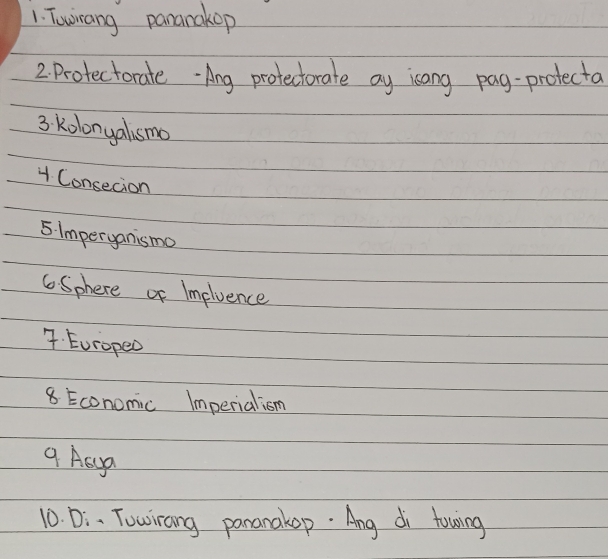 1. Tuwirang pananakop
2. Protectorate - Ang protectorate ay isang pag-protecta
3. Kolonyalismo
4. Consecion
5. Imperyanismo
6. Sphere of Impluence
7. Europeo
8. Economic Imperialism
9 Asya
10. Di - Tuwirang pananakop - Ang di tuwing